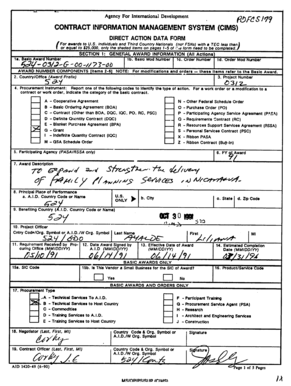 Agency for International Development
PDFCS199
CONTRACT INFORMATION MANAGEMENT SYSTEM (CIMS)
DIRECT ACTION DATA FORM
(For awards to U.S. Individuals and Third Country Nationals (not FSNs) with a TCC less than) or equal to $25,000, only the shaded items on pages 1-3 of this form need be completed.)
SECTION 1: GENERAL AWARD INFORMATION (All Actions)
1a. Basic Award Number
524-0312-G-00-1173-00
1b. Basic Mod Number
1c. Order Number
1d. Order Mod. Number
AWARD NUMBER COMPONENTS (Items 2-6) NOTE: For modifications and orders - these items refer to the Basic Award.
2. Country/Office (Award Prefix)
524
3. Project Number
0312
4. Procurement Instrument. Report one of the following codes to identify the type of action. For a work order or a modification to a contract or work order, indicate the category of the basic contract.
A - Cooperative Agreement
B - Basic Ordering Agreement (BOA)
C - Contract (Other than BOA, IQC, PO, RG, PSC)
D - Definite Quantity Contract (DQC)
E - Blanket Purchase Agreement (BPA)
G - Grant
I - Indefinite Quantity Contract (IQC)
M - GSA Schedule Order
N - Other Federal Schedule Order
O - Purchase Order (PO)
P - Participating Agency Service Agreement (PASA)
Q - Requirements Contract (RC)
R - Resources Support Services Agreement (RSSA)
S - Personal Services Contract (PSC)
5. Participating Agency (PASA/RSSA only)
6. FY of Award
91
7. Award Description
TO EXPAND and Strengthen the delivery
of FAMILY PLANNING SERVICES IN NICARAGUA.
8. Principal Place of Performance
a. A.I.D. Country Code or Name)
524
U.S. ONLY
b. City
c. State
d. Zip Code
9. Benefiting Country (A.I.D. Country Code or Name)
524
OCT 30 1991
10. Project Officer
Entry Code/Org. Symbol or A.I.D./W Org. Symbol
Last Name
First
MI
524/GDO
Liliana
11. Requirement Received by Procuring Office (MM/DD/YY)
12. Date Award Signed by A.I.D. (MM/DD/YY)
06/14/91
13. Effective Date of Award (MM/DD/YY)
06/14/91
14. Estimated Completion Date (MM/DD/YY)
BASIC AWARDS ONLY
15a. SIC Code
15b. Is This Vendor a Small Business for the SIC of Award?
Yes
No
16. Product/Service Code
BASIC AWARDS AND ORDERS ONLY
17. Procurement Type
A - Technical Services to A.I.D.
B - Technical Services to Host Country
C - Commodities
D - Training Services to A.I.D.
E - Training Services to Host Country
F - Participant Training
G - Procurement Service Agent (PSA)
H - Research
I - Architect and Engineering Services
J - Construction
18. Negotiator (Last, First, MI)
Country Code & Org. Symbol or A.I.D./W Org. Symbol
Signature
19. Contract Officer (Last, First, MI)
Country Code & Org. Symbol or A.I.D./W Org. Symbol
Signature
Page 1 of 3 Pages